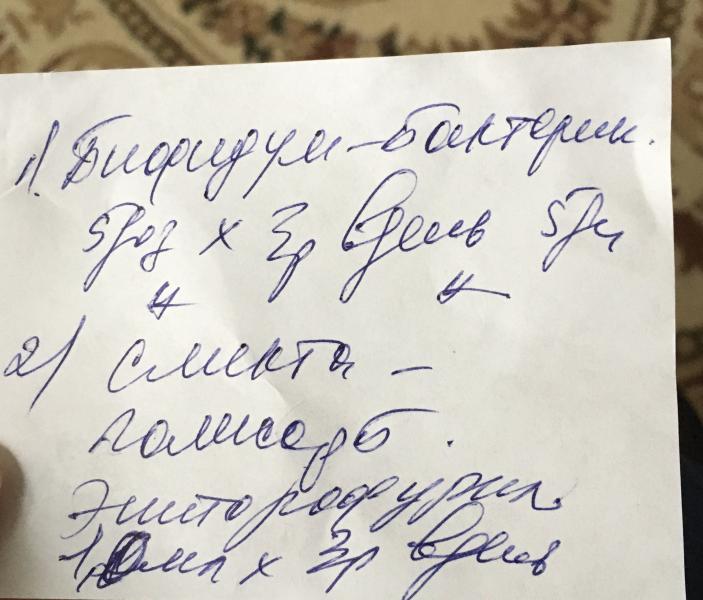 1) Бифидум-бактерин.
5доз x 3р в день 5дн
2) Смекта -
полисорб.
Энтерофурил
x 3р в день